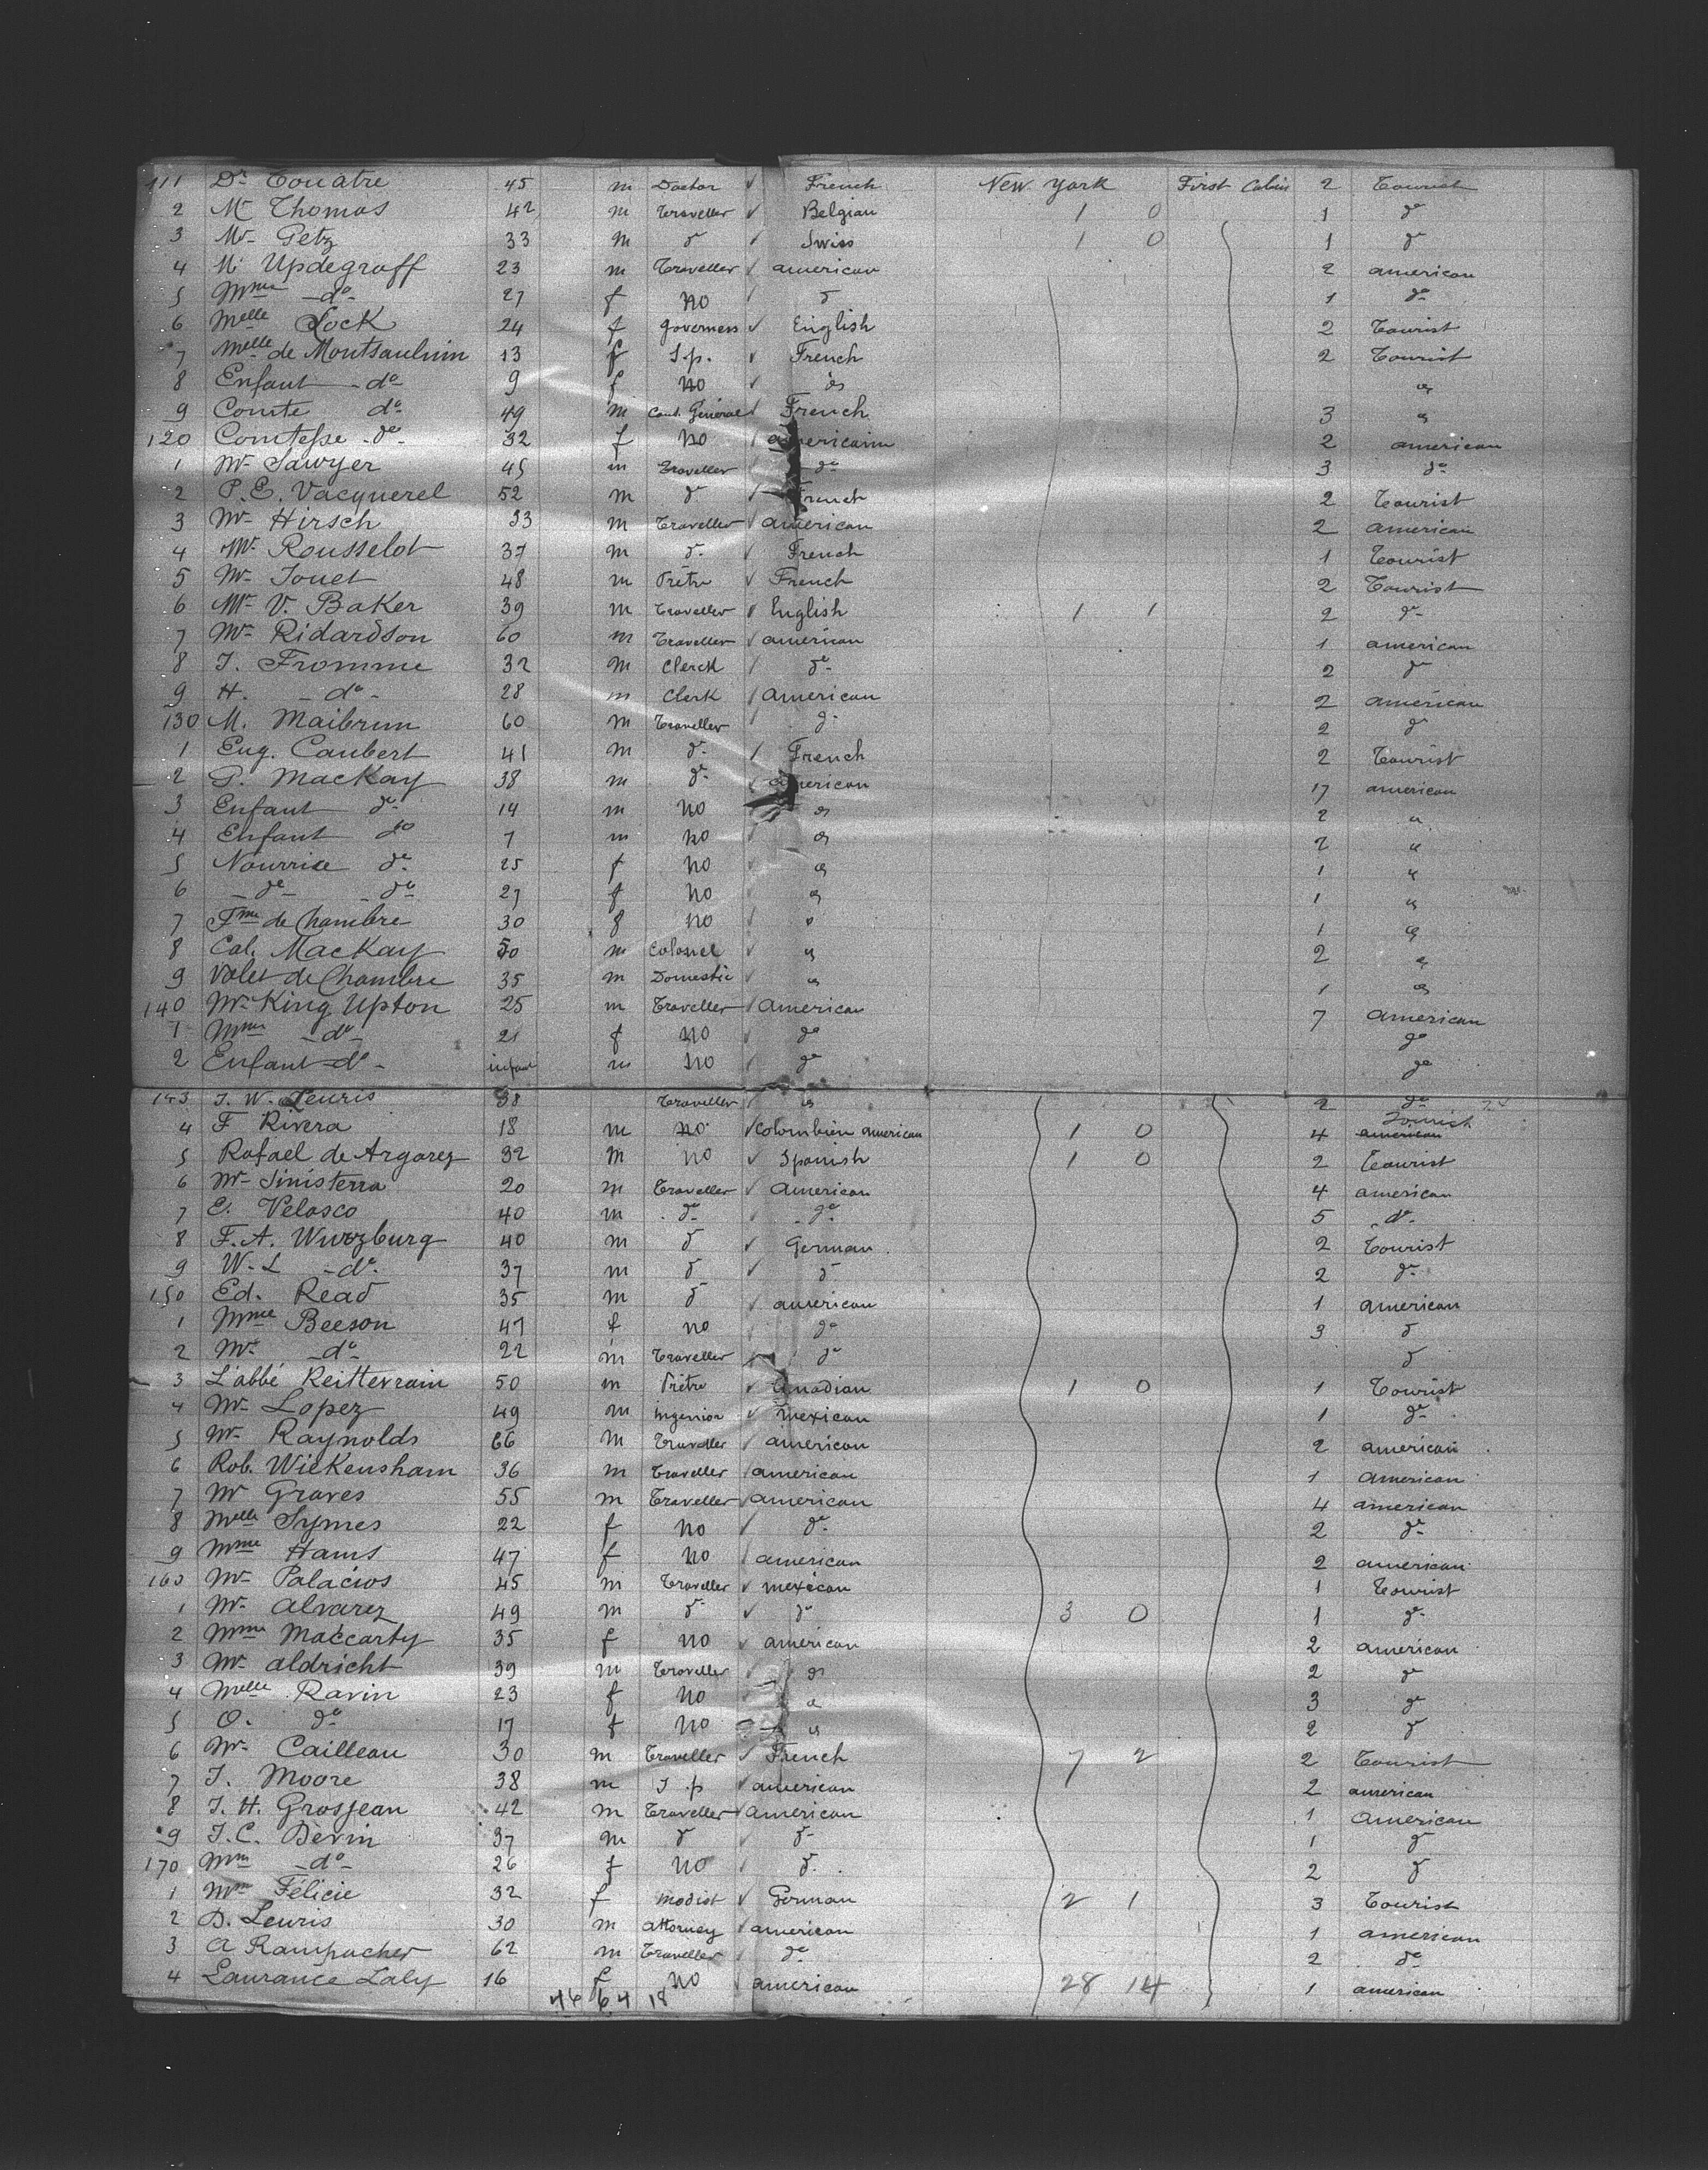 111 Dr Touatre 45 m Doctor ✓ French New York First Cabin 2 Tourist
2 Mr Thomas 42 m Traveller ✓ Belgian 1 0 1 do
3 Mr Petz 33 m do ✓ Swiss 1 0 1 do
4 Mr Updegraff 23 m Traveller ✓ american 2 american
5 Mme do 27 f no do 1 do
6 Melle Lock 24 f governess ✓ English 2 Tourist
7 Melle de Montsaulnin 13 f S.p. ✓ French 2 Tourist
8 Enfant do 9 f no ✓ do
9 Comte do 49 m Cons. Général French 3
120 Comtesse do 32 f no americain 2 american
1 Mr Sawyer 45 m Traveller do 3 do
2 P.E. Vacquerel 52 m do French 2 Tourist
3 Mr Hirsch 33 m Traveller ✓ american 2 american
4 Mr Rousselot 37 m do ✓ French 1 Tourist
5 Mr Jouet 48 m Prêtre ✓ French 2 Tourist
6 Mr V. Baker 39 m Traveller ✓ English 1 1 2 do
7 Mr Ridardson 60 m Traveller ✓ american 1 american
8 J. Fromme 32 m Clerck do 2 do
9 H. do 28 m Clerk american 2 american
130 M. Maibrun 60 m Traveller do 2 do
1 Eug. Caubert 41 m do French 2 Tourist
2 P. MacKay 38 m do american 17 american
3 Enfant do 14 m no do 2 "
4 Enfant do 7 m no do 2 "
5 Nourrice do 25 f no do 1 "
6 do do 27 f no do 1 "
7 Fme de Chambre 30 f no " 1
8 Col. MacKay 50 m Colonel " 2
9 Valet de Chambre 35 m Domestic " 1
140 Mr King Upton 25 m Traveller American 7 American
1 Mme do 21 f no do do
2 Enfant do infant m no do do
143 J. W. Leuris 38 Traveller " 2 do
4 F Rivera 18 m no ✓ Colombien american 1 0 4 american Tourist
5 Rafael de Argarez 32 m no ✓ Spanish 1 0 2 Tourist
6 Mr Sinisterra 20 m Traveller ✓ American 4 american
7 E. Velasco 40 m do do 5 do
8 F. A. Wurzburg 40 m do ✓ German 2 Tourist
9 W. L do 37 m do ✓ do 2 do
150 Ed. Read 35 m do american 1 american
1 Mme Beeson 47 f no do 3 do
2 Mr do 22 m Traveller do do
3 L'abbé Reitterrain 50 m Prêtre ✓ Canadian 1 0 1 Tourist
4 Mr Lopez 49 m ingenior ✓ mexican 1 do
5 Mr Raynolds 66 m Traveller american 2 american
6 Rob. Wickensham 36 m Traveller american 1 American
7 Mr Graves 55 m Traveller american 4 american
8 Melle Symes 22 f no do 2 do
9 Mme Hams 47 f no american 2 american
160 Mr Palacios 45 m Traveller ✓ mexican 1 Tourist
1 Mr Alvarez 49 m do ✓ do 3 0 1 do
2 Mme Maccarty 35 f no american 2 american
3 Mr Aldricht 39 m Traveller do 2 do
4 Melle Ravin 23 f no " 3 do
5 O. do 17 f no " 2 do
6 Mr Cailleau 30 m Traveller ✓ French 7 2 2 Tourist
7 J. Moore 38 m S.p ✓ american 2 american
8 J. H. Grosjean 42 m Traveller ✓ American 1 American
9 J. C. Devin 37 m do do 1 do
170 Mme do 26 f no do 2 do
1 Mme Félicie 32 f modist ✓ German 2 1 3 Tourist
2 D. Leuris 30 m attorney ✓ american 1 american
3 A Rampacher 62 m Traveller do 2 do
4 Laurance Laly 16 f no ✓ american 28 14 1 american
46 64 18